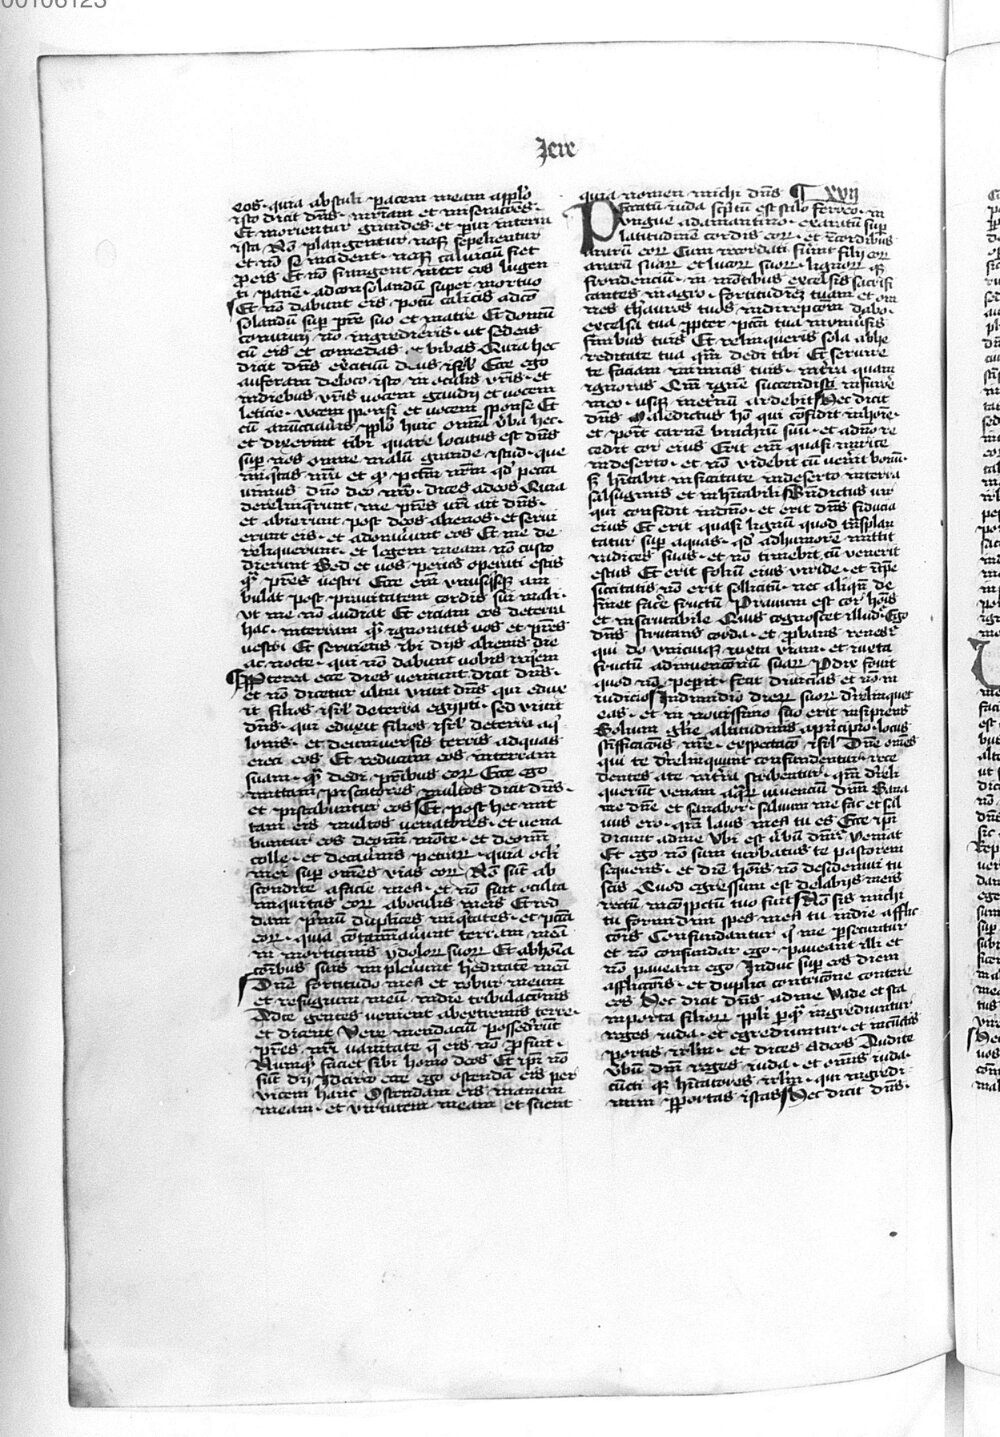 00106123
Jere
eos · quia abstuli pacem meam a pplo
isto dicit dns · miam et miseracoes ·
Et morientur grandes et pvi in terra
ista No plangentur neqz sepelientur
et no se incident · neqz calviciu fiet
p eis Et no frangent inter eos lugen
ti pane · ad consolandu super mortuo
Et no dabunt eis potu calicis ad co
solandu sup pre suo et matre Et domu
conuiuij no ingredieris · ut sedeas
cu eis et comedas et bibas Quia hec
dicit dns exercituu deus isrl Ecce ego
auferam de loco isto in oculis vris · et
in diebus vris vocem gaudij et vocem
leticie · vocem sponsi et vocem sponse Et
cu annuciaueris pplo huic omia vba hec ·
et dixerint tibi quare locutus est dns
sup nos omne malu grande istud · que
iniqtas nra et qd pctm nrm qd pecca
uimus dno deo nro · dices ad eos Quia
dereliquerunt me pres vri ait dns ·
et abierunt post deos alienos · et serui
erunt eis · et adorauerut eos Et me de
reliquerunt · et legem meam no custo
dierunt Sed et uos peius operati estis
q pres uestri Ecce em unusqsqz am
bulat post prauitatem cordis sui mali ·
vt me no audiat Et eiciam eos de terra
hac · in terram qm ignoratis uos et pres
uestri Et seruietis ibi dijs alienis die
ac nocte · qui no dabunt vobis requiem
Ppterea ecce dies veniunt dicit dns ·
et no dicetur ultra viuit dns qui edux
it filios isrl de terra egypti · sed viuit
dns · qui eduxit filios isrl de terra aqi
lonis · et de uniuersis terris ad quas
eieci eos Et reducam eos in terram
suam · qm dedi pribus eorr Ecce ego
mittam piscatores multos dicit dns ·
et piscabuntur eos Et post hec mit
tam eis multos venatores · et vena
buntur eos de omi monte · et de omi
colle · et de cauernis petrarr · quia oculi
mei sup omes vias eorr No sut ab
scondite a facie mea · et no fuit occulta
iniquitas eorr ab oculis meis Et red
dam primu duplices iniqtates · et pcta
eorr · quia cotaminauerunt terram mea
in morticinis ydolorr suorr Et abhoia
conibus suis impleuerunt hereditate mea
Dne fortitudo mea et robur meum
et refugium meu in die tribulaconis
Ad te gentes venient ab extremis terre ·
et dicent Vere mendaciu possederut
pres nri vanitate q eis no pfuit ·
Nunqd faciet sibi homo deos Et ipi no
sut dij Idcirco ecce ego ostendam eis per
vicem hanc Ostendam eis manum
meam · et virtutem meam et scient
quia nomen michi dns ¶ xvij
Peccatu iuda sciptu est stilo ferreo · in
ongue adamantino · exaratu sup
latitudine cordis eorr · et in cordibus
araru eorr Cum recordati fuerint filij eorr
araru suarr et lucorr suorr · lignorr qz
frondenciu · in montibus excelsis sacrifi
cantes in agro · fortitudinez tuam et om
nes thesauros tuos in direptiom dabo ·
excelsa tua ppter pcta tua in uniusis
finibus tuis Et relinqueris sola ab he
reditate tua qm dedi tibi Et seruire
te faciam inimicis tuis · in terra quam
ignoras Qm igne succendisti in furore
meo · usqz in eternu ardebit Hec dicit
dns Maledictus ho qui cofidit in hoie ·
et ponit carne brachiu suu · et a dno re
cedit cor eius Erit em quasi mirice
in deserto · et no videbit cu venerit bonu ·
sz habitabit in siccitate in deserto in terra
salsuginis et inhabitabili Bndictus vir
qui confidit in dno · et erit dns fiducia
eius Et erit quasi lignu quod tnsplan
tatur sup aquas · qd ad humore mittit
radices suas · et no timebit cu venerit
estus Et erit foliu eius viride · et in tpe
siccitatis no erit sollicitu · nec aliqn de
sinet facere fructu Prauum est cor hois
et inscrutabile Quis cognoscet illud · Ego
dns scrutans corda · et pbans renes
qui do vnicuiqz iuxta viam · et iuxta
fructu adinuenconu suarr Pdix fouit
quod no peperit · fecit diuicias et no in
iudicio In dimidio dierr suorr derelinquet
eas · et in nouissimo suo erit insipiens
Solium glie altitudinis a principio · locus
scificaconis nre · exspectaco isrl Dne omes
qui te derelinquunt confundentur · rece
dentes a te in terra scribentur · qm dereli
querut venam aqrr viuenciu dnm Sana
me dne et sanabor · saluum me fac et sal
uus ero · qm laus mea tu es Ecce ipi
dicunt ad me Vbi est vbu dni veniat
Et ego no sum turbatus te pastorem
sequens · et die hois no desideraui tu
scis Quod egressum est de labijs meis
rectu in cospectu tuo fuit No sis michi
tu formidini spes mea tu in die afflic
cois Confundantur q me psecuntur
et no confundar ego · paueant illi et
no paueam ego Induc sup eos diem
afflictois · et duplici contricone contere
eos Hec dicit dns ad me Vade et sta
in porta filiorr ppli p qm ingrediuntur
reges iuda · et egrediuntur · et in cunctis
portis irlm · et dices ad eos Audite
vbum dni reges iuda · et omis iuda ·
cuncti qz habitatores irlm · qui ingredi
mini p portas istas Hec dicit dns ·